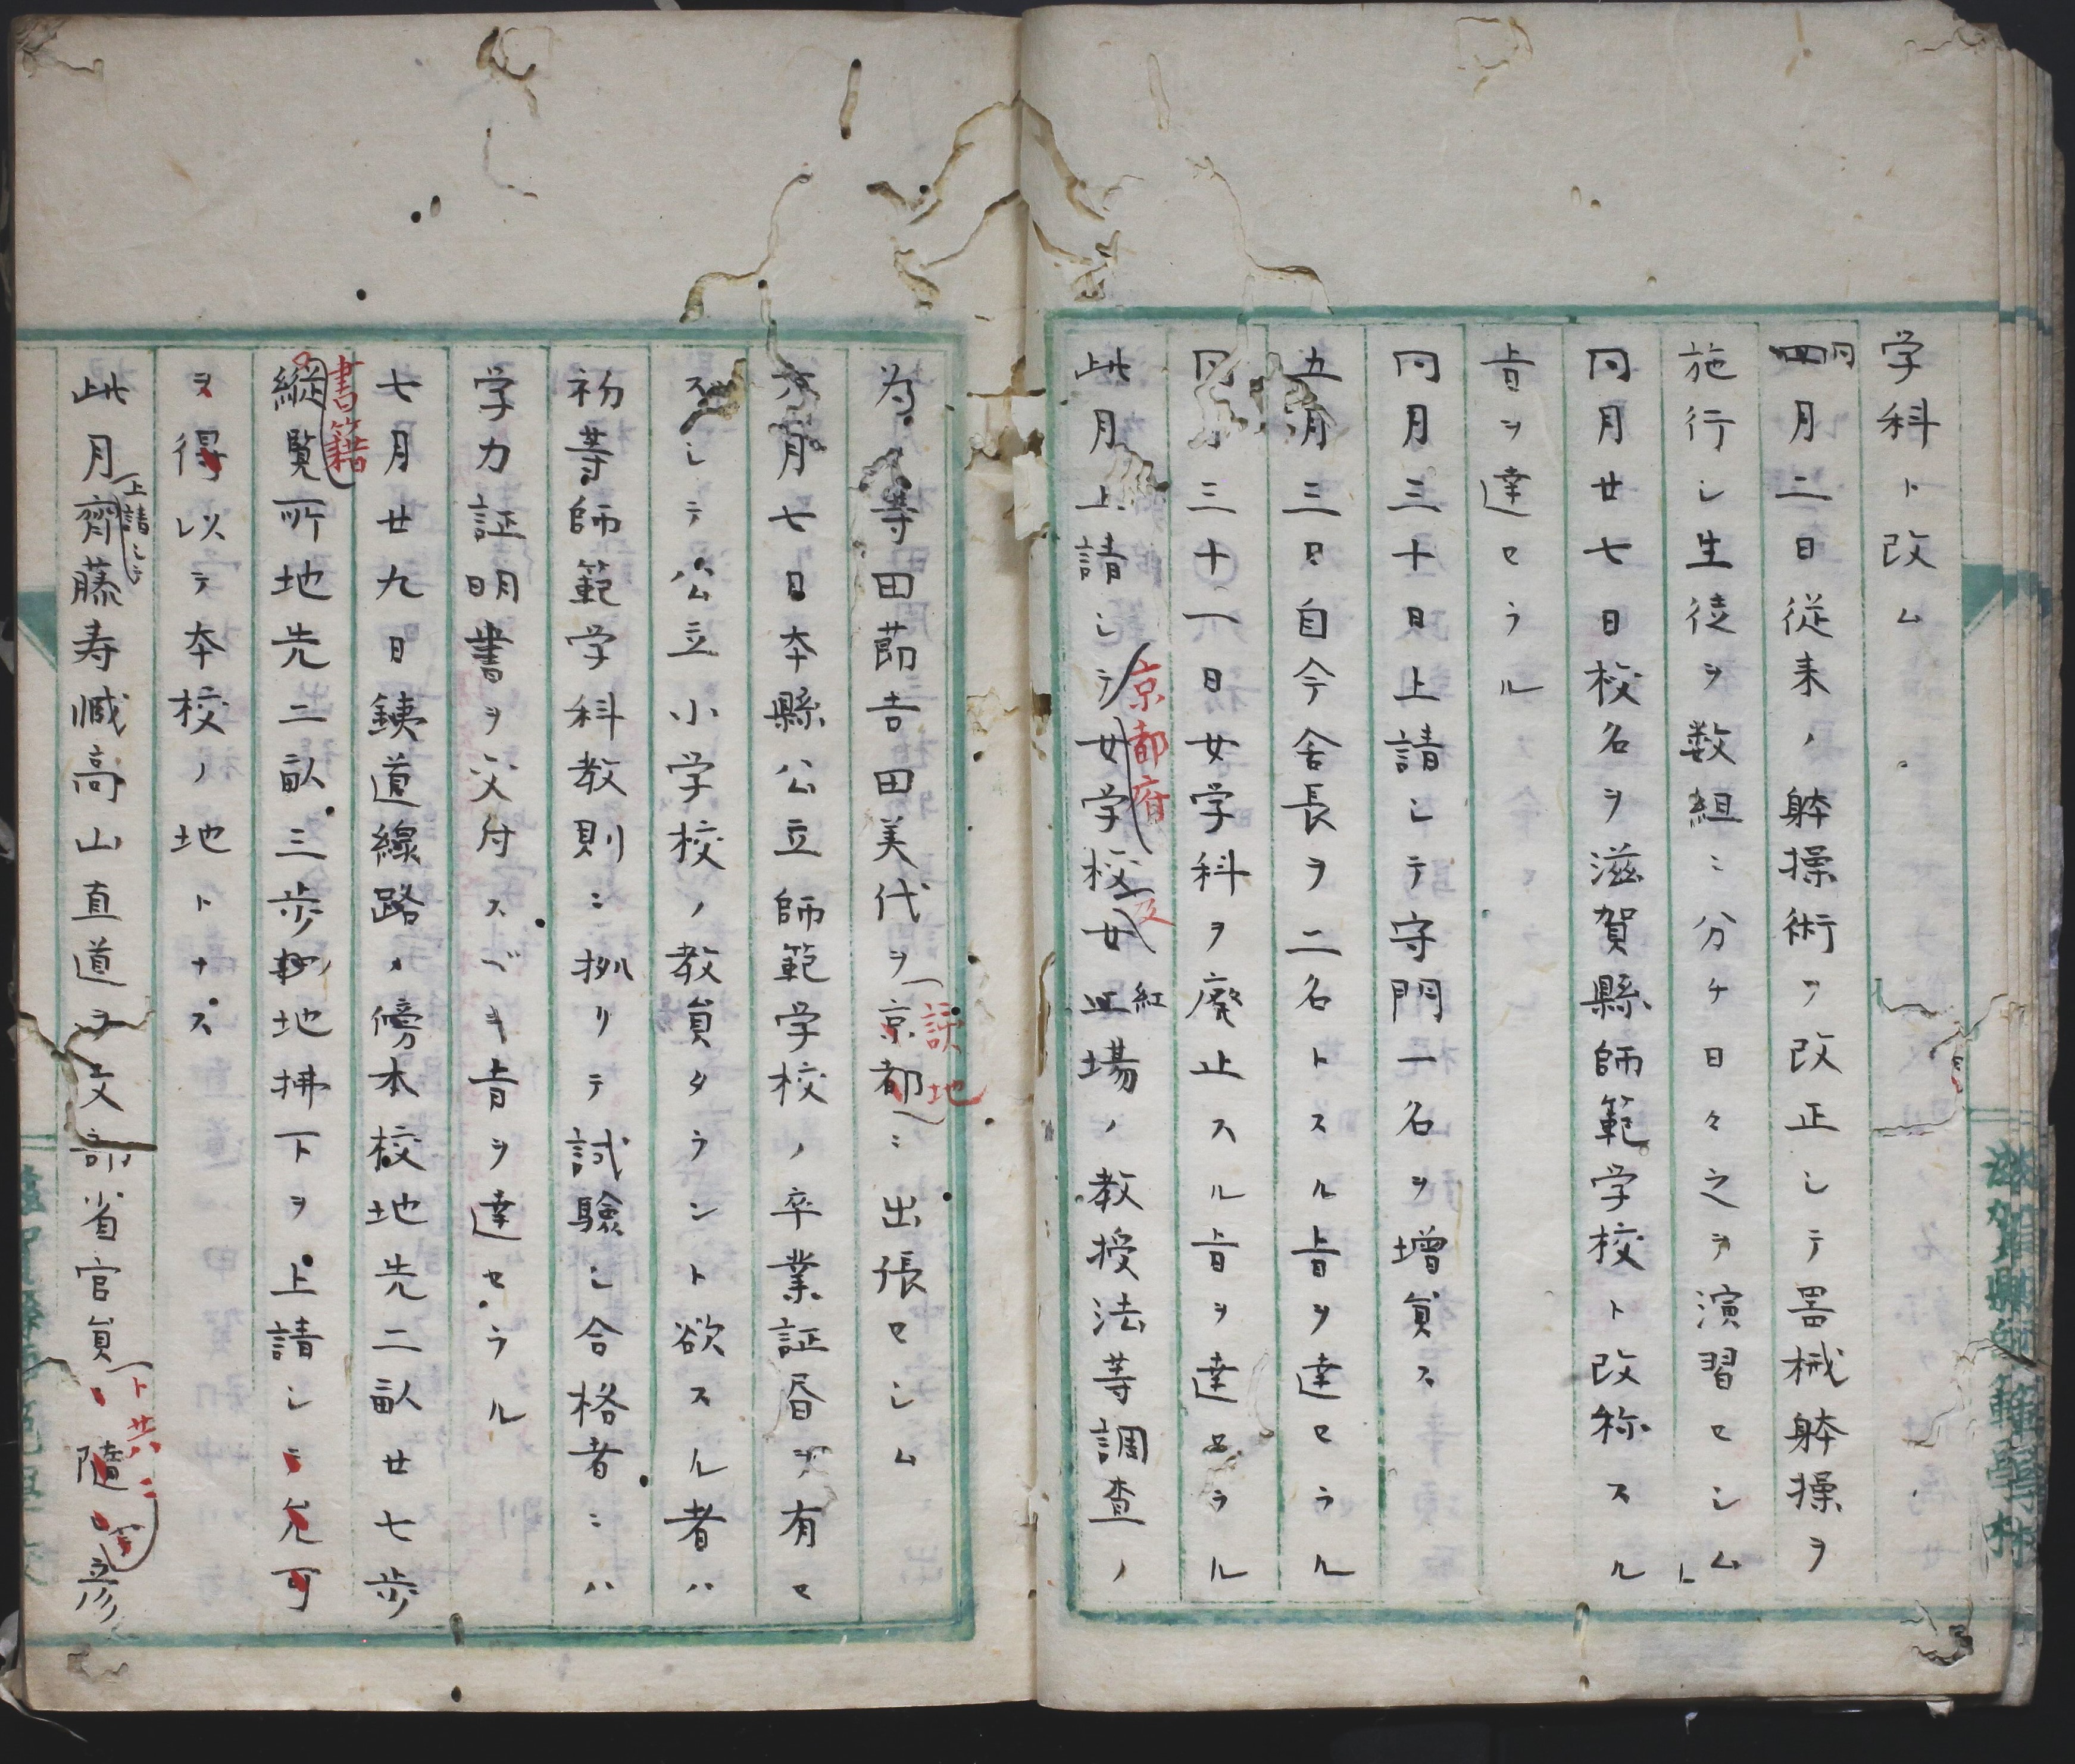 学科ト改ム
同月二日従来ノ躰操術ヲ改正シテ器械躰操ヲ
施行シ生徒ヲ数組ニ分チ日々之ヲ演習セシム
同月廿七日校名ヲ滋賀縣師範学校ト改称スル
旨ヲ達セラル
同月三十日上請シテ守門一名ヲ増員ス
五月三日自今舎長ヲ二名トスル旨ヲ達セラル
同月三十一日女学科ヲ廃止スル旨ヲ達セラル
此月上請シテ京都府女学校及女紅場ノ教授法等調査ノ
為メ等田莭吉田美代ヲ京都ニ出張セシム
該地
六月七日本縣公立師範学校ノ卒業証書ヲ有セ
スシテ公立小学校ノ教員タラント欲スル者ハ
初等師範学科教則ニ拠リテ試験シ合格者ニハ
学力証明書ヲ交付スベキ旨ヲ達セラル
七月廿九日鉄道線路ノ傍本校地先二畝廿七歩
書籍
縦覧所地先二畝三歩地拂下ヲ上請シテ允可
ヲ得以テ本校ノ地トナス
上請シテ
此月齊藤寿臧高山直道ヲ文部省官員隨彦
ト共ニ
滋賀縣師範學校